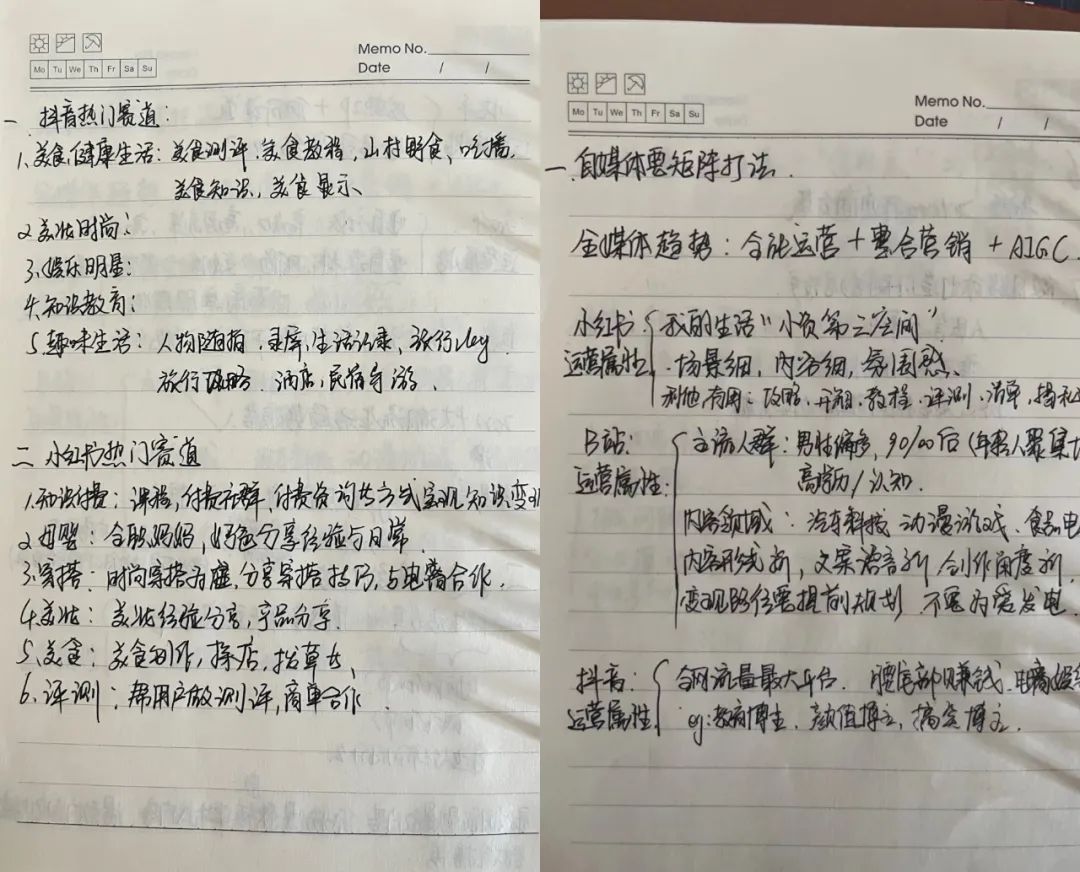 Memo No.
Mo Tu We Th Fr Sa Su
Date / /
一 抖音热门赛道:
1、美食、健康生活: 美食测评、美食教程, 山村野食、吃播、
美食知识, 美食展示、
2、美妆时尚:
3、娱乐明星:
4、知识教育:
5、趣味生活: 人物随拍, 生活记录、旅行vlog
旅行攻略、酒店, 民宿导游、
二 小红书热门赛道
1、知识付费: 课程, 付费社群、付费咨询等方式实现知识变现
2、母婴: 全职妈妈, 分享经验与日常、
3、穿搭: 时尚穿搭为主, 分享穿搭技巧, 与电商合作、
4、美妆: 美妆经验分享, 产品分享、
5、美食: 美食制作, 探店, 拔草等、
6、评测: 帮用户做测评, 商单合作、
Memo No.
Mo Tu We Th Fr Sa Su
Date / /
一、自媒体要矩阵打法、
全媒体趋势: 全能运营+整合营销+AIGC、
小红书 我的生活“小资第三空间”
运营属性 场景细, 内容细, 氛围感、
利他, 有用: 攻略、开箱、教程、评测、清单, 揭秘
B站: 主流人群: 男性偏多, 90/00后(年轻人聚集
运营属性: 高学历/认知、
内容领域: 汽车科技 动漫游戏、食品电
内容形式新, 文案语言新, 创作角度新、
变现路径要提前规划 不要为爱发电
抖音: 全网流量最大平台、腰尾部赚钱、电商
运营属性 eg: 教育博主、颜值博主, 搞笑博主、